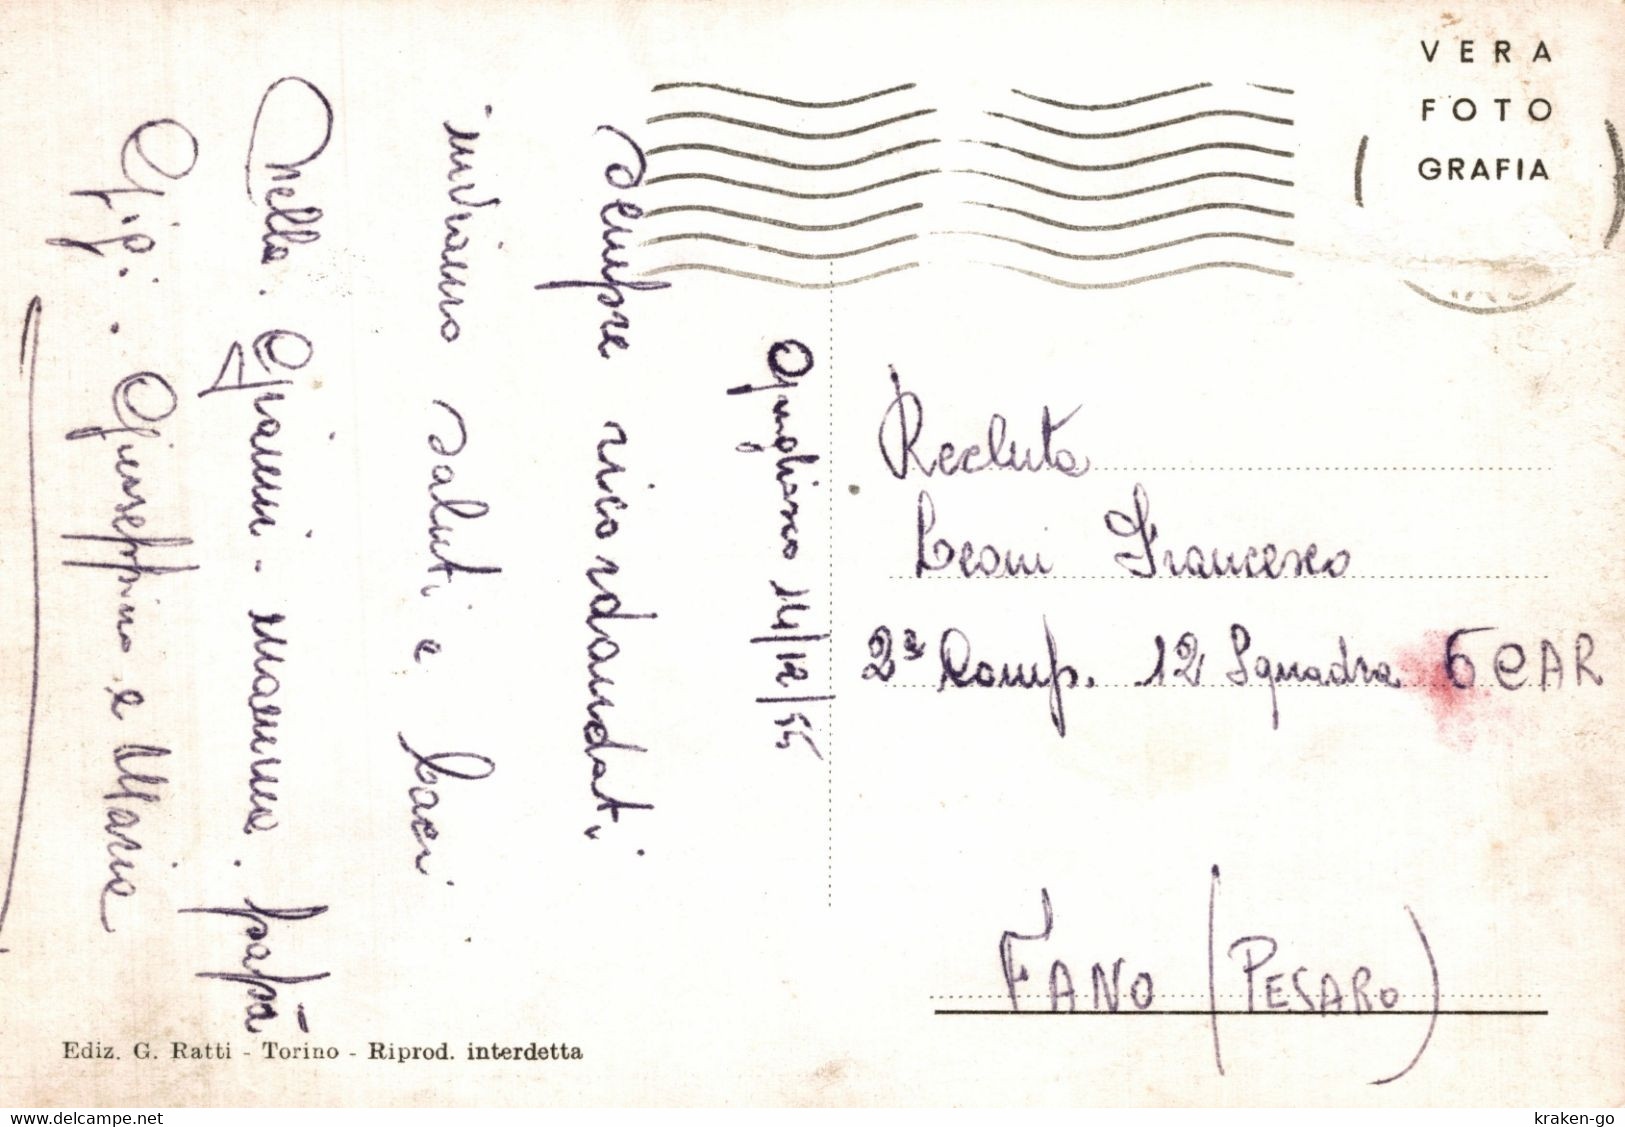 VERA
FOTO
GRAFIA
Quagliuzzo 14/12/55
Sempre ricordandoti
inviamo saluti e baci
Nella. Gianni. mamma. papà
Gigi. Giuseppina e Maria
Recluta
Leoni Francesco
2ª Comp. 12 Squadra 6 CAR
FANO (PESARO)
Ediz. G. Ratti - Torino - Riprod. interdetta
delcampe.net
kraken-go